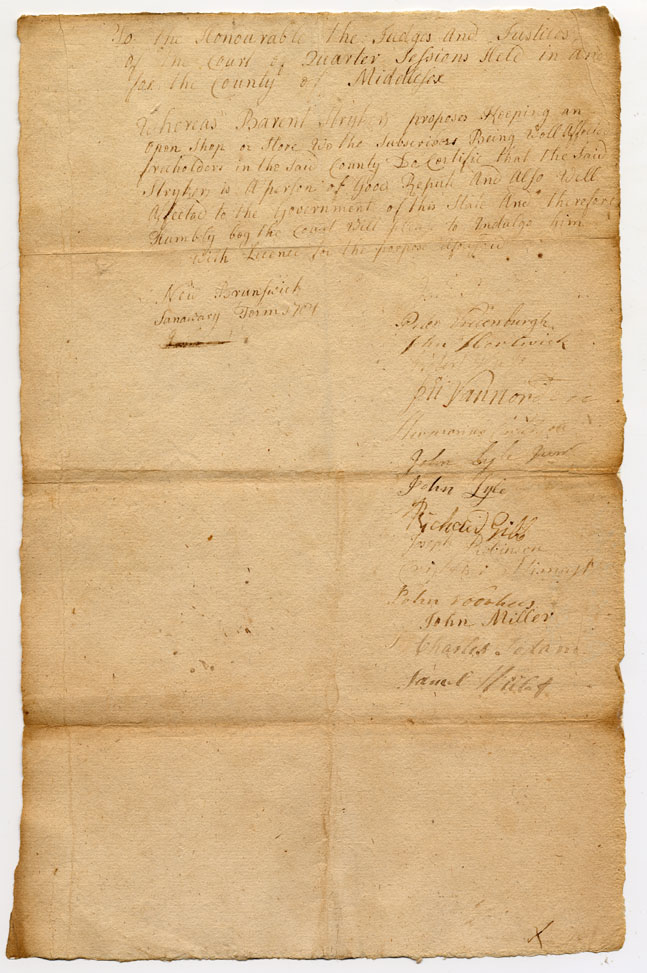 To the Honourable the Judges and Justices
of the Court of Quarter Sessions Held in and
for the County of Middlesex
Whereas Barent Stryker proposes Keeping an
open Shop or Store We the Subscribers Being Well Affected
freeholders in the Said County Do Certifie that the Said
Stryker is A person of Good Repute And Also Well
Afected to the Government of this State And therefore
Humbly beg the Court Will please to Indulge him
With Licence for the purpose
New Brunswick
Janawary Term 1784
Peter Vredenburgh
John Hortwick
John Lyle Junr
John Lyle
Richard Gibb
Joseph Robinson
John Voorhees
John Miller
Charles
X